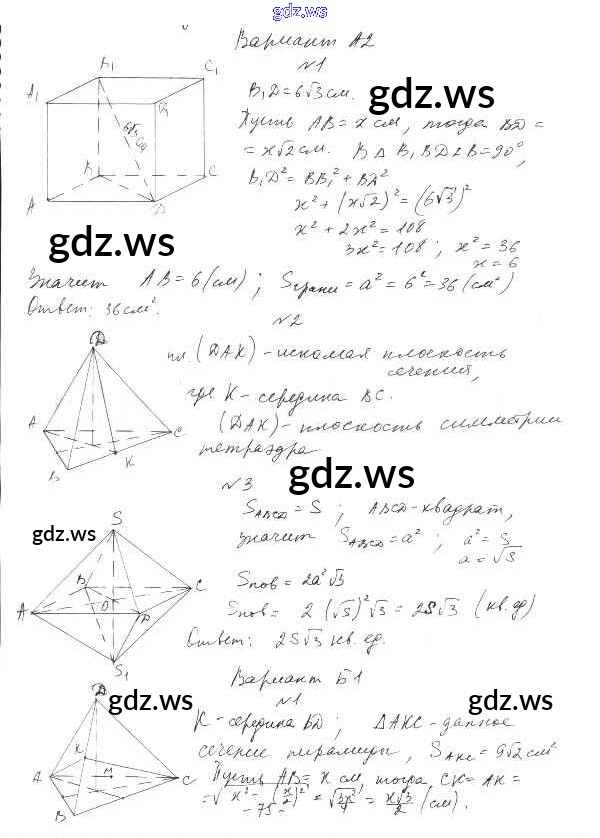 gdz.ws
Вариант А2
№1
B₁D = 6√3 см.
Пусть AB = x см, тогда BD =
= x√2 см. В Δ B₁BD ∠B = 90°,
B₁D² = BB₁² + BD²
x² + (x√2)² = (6√3)²
x² + 2x² = 108
3x² = 108; x² = 36
x = 6
Значит AB = 6 (см); Sграни = a² = 6² = 36 (см²)
Ответ: 36 см².
B₁ C₁
A₁ D₁
6√3 см
B C
A D
gdz.ws
gdz.ws
№2
пл. (DAK) - искомая плоскость
сечения,
где K - середина BC.
(DAK) - плоскость симметрии
тетраэдра.
D
A C
B K
gdz.ws
№3
S_ABCD = S; ABCD - квадрат,
значит S_ABCD = a²; a² = S
a = √S
Sпов = 2a²√3
Sпов = 2(√S)²√3 = 2S√3 (кв. ед)
Ответ: 2S√3 кв. ед.
gdz.ws
S
B C
A O D
S₁
Вариант Б1
№1
K - середина BD; ΔAKC - данное
сечение пирамиды, S_AKC = 9√2 см²
Пусть AB = x см, тогда CK = AK =
= √x² - (x/2)² = √3x²/4 = x√3/2 (см).
D
K
A M C
B
gdz.ws
gdz.ws
- 75 -